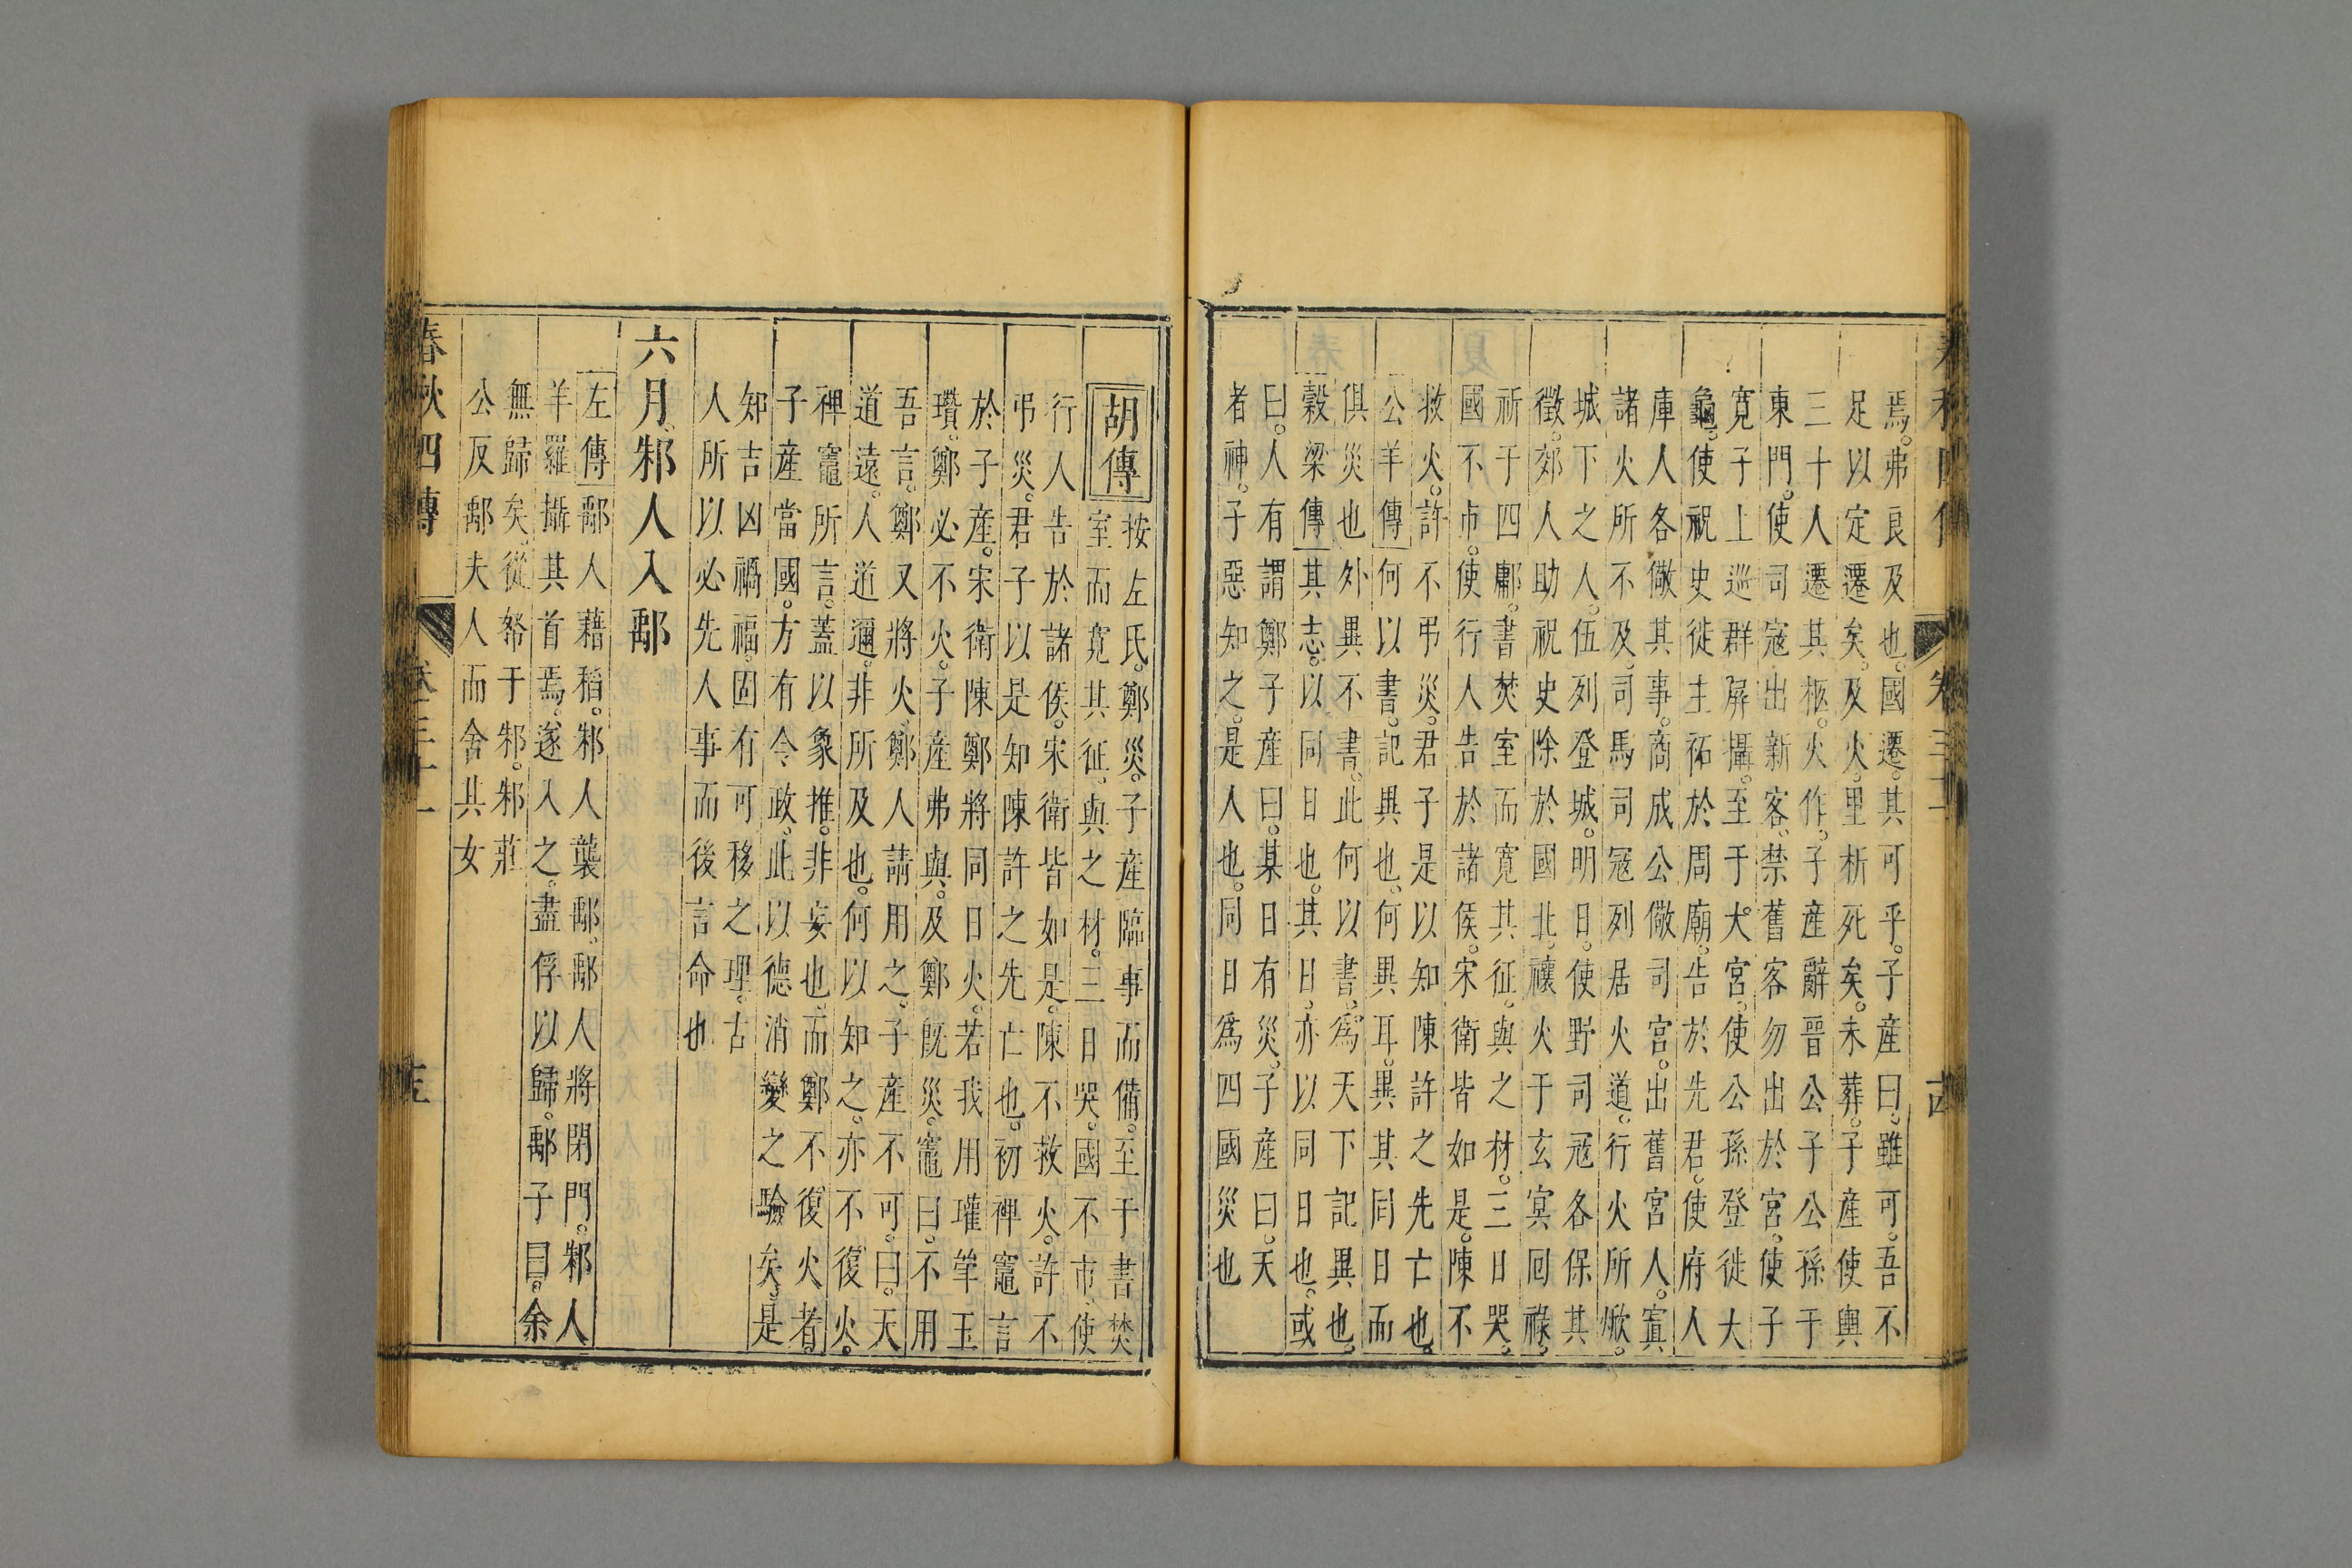 焉。弗良及也。國遷。其可乎。子產曰。雖可。吾不
足以定遷矣。及火。里析死矣。未葬。子產使輿
三十人遷其柩。火作。子產辭晉公子公孫于
東門。使司寇出新客。禁舊客勿出於宮。使子
寬子上巡群屏攝。至于大宮。使公孫登徙大
龜。使祝史徙主祏於周廟。告於先君。使府人
庫人各儆其事。商成公儆司宮。出舊宮人。寘
諸火所不及。司馬司寇列居火道。行火所焮。
城下之人。伍列登城。明日。使野司寇各保其
徵。郊人助祝史除於國北。禳火于玄冥回祿。
祈于四鄘。書焚室而寬其征。與之材。三日哭。
國不市。使行人告於諸侯。宋衛皆如是。陳不
救火。許不弔災。君子是以知陳許之先亡也。
公羊傳何以書。記異也。何異耳。異其同日而
俱災也外異不書。此何以書。爲天下記異也。
穀梁傳其志。以同日也。其日。亦以同日也。或
曰。人有謂鄭子產曰。某日有災。子產曰。天
者神。子惡知之。是人也。同日爲四國災也
胡傳按左氏。鄭災。子產臨事而備。至于書焚
室而寬其征。與之材。三日哭。國不市。使
行人告於諸侯。宋衛皆如是。陳不救火。許不
弔災。君子以是知陳許之先亡也。初裨竈言
於子產。宋衛陳鄭將同日火。若我用瓘斚玉
瓚。鄭必不火。子產弗與。及鄭旣災。竈曰。不用
吾言。鄭又將火。鄭人請用之。子產不可。曰。天
道遠。人道邇。非所及也。何以知之。亦不復火。
裨竈所言。蓋以象推。非妄也。而鄭不復火者。
子產當國。方有令政。此以德消變之驗矣。是
知吉凶禍福。固有可移之理。古
人所以必先人事而後言命也
六月。邾人入鄅
左傳鄅人藉稻。邾人襲鄅。鄅人將閉門。邾人
羊羅攝其首焉。遂入之。盡俘以歸。鄅子曰。余
無歸矣。從帑于邾。邾莊
公反鄅夫人而舍其女
春秋四傳